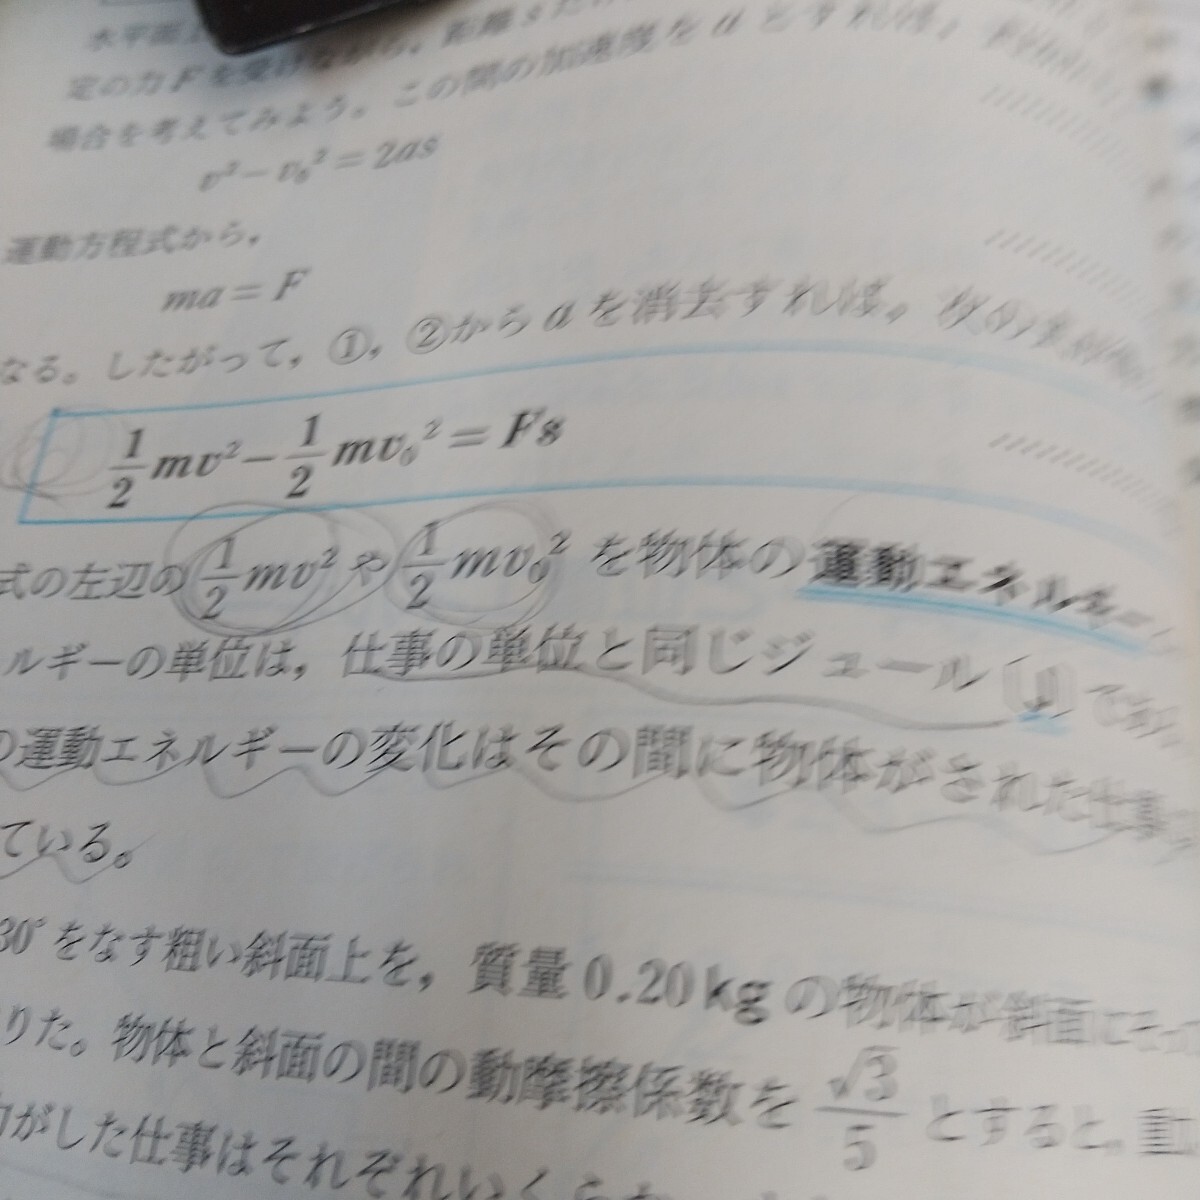 水平面
定の力Fを受けながら，距離s
場合を考えてみよう。この間の加速度をaとすれば，
v²－v₀²＝2as
運動方程式から，
ma＝F
なる。したがって，①，②からaを消去すれば，次の
1/2 mv²－1/2 mv₀²＝Fs
式の左辺の1/2 mv²や1/2 mv₀²を物体の運動エネルギー
ルギーの単位は，仕事の単位と同じジュール（J）であ
の運動エネルギーの変化はその間に物体がされた仕事
ている。
30°をなす粗い斜面上を，質量0.20kgの物体が斜面にそっ
りた。物体と斜面の間の動摩擦係数を√3/5とすると，重
力がした仕事はそれぞれいくらか